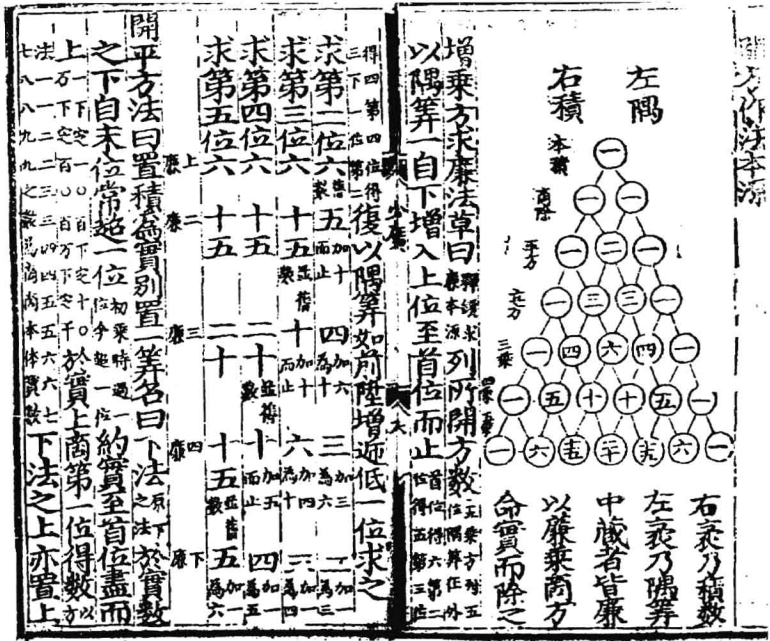 開方作法本源
左隅
右積
本積
商除
平方
立方
三乘
四乘
一
一 一
一 二 一
一 三 三 一
一 四 六 四 一
一 五 十 十 五 一
一 六 十五 二十 十五 六 一
右袤乃積數
左袤乃隅算
中藏者皆廉
以廉乘商方
命實而除之
增乘方求廉法草曰 釋鎖求廉本源 列所開方數 五乘方列五位隅算在外
以隅算一自下增入上位至首位而止 首位得六第二位得五第三位
得四第四位得三下一位第二 復以隅算如前陞增遞低一位求之
求第二位六 舊數 五 加十而止 四 加六為十 三 加三為六 二 加一為三
求第三位六 十五 並舊數 十 加十而止 六 加四為十 三 加一為四
求第四位六 十五 二十 並舊數 十 加五而止 四 加一為五
求第五位六 十五 二十 十五 並舊數 五 加一為六
上廉 二廉 三廉 四廉 下廉
開平方法曰置積為實別置一算名曰下法 於實數
之下自末位常超一位 約實至首位盡而
上 於實上商第一位得數
下法之上亦置上